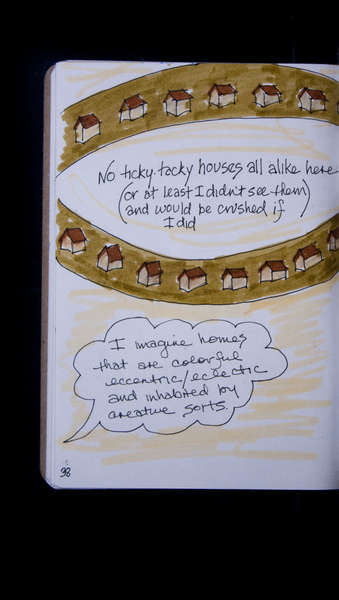 No ticky-tacky houses all alike here
(or at least I didn't see them)
and would be crushed if
I did
I imagine homes
that are colorful
eccentric/eclectic
and inhabited by
creative sorts.
98